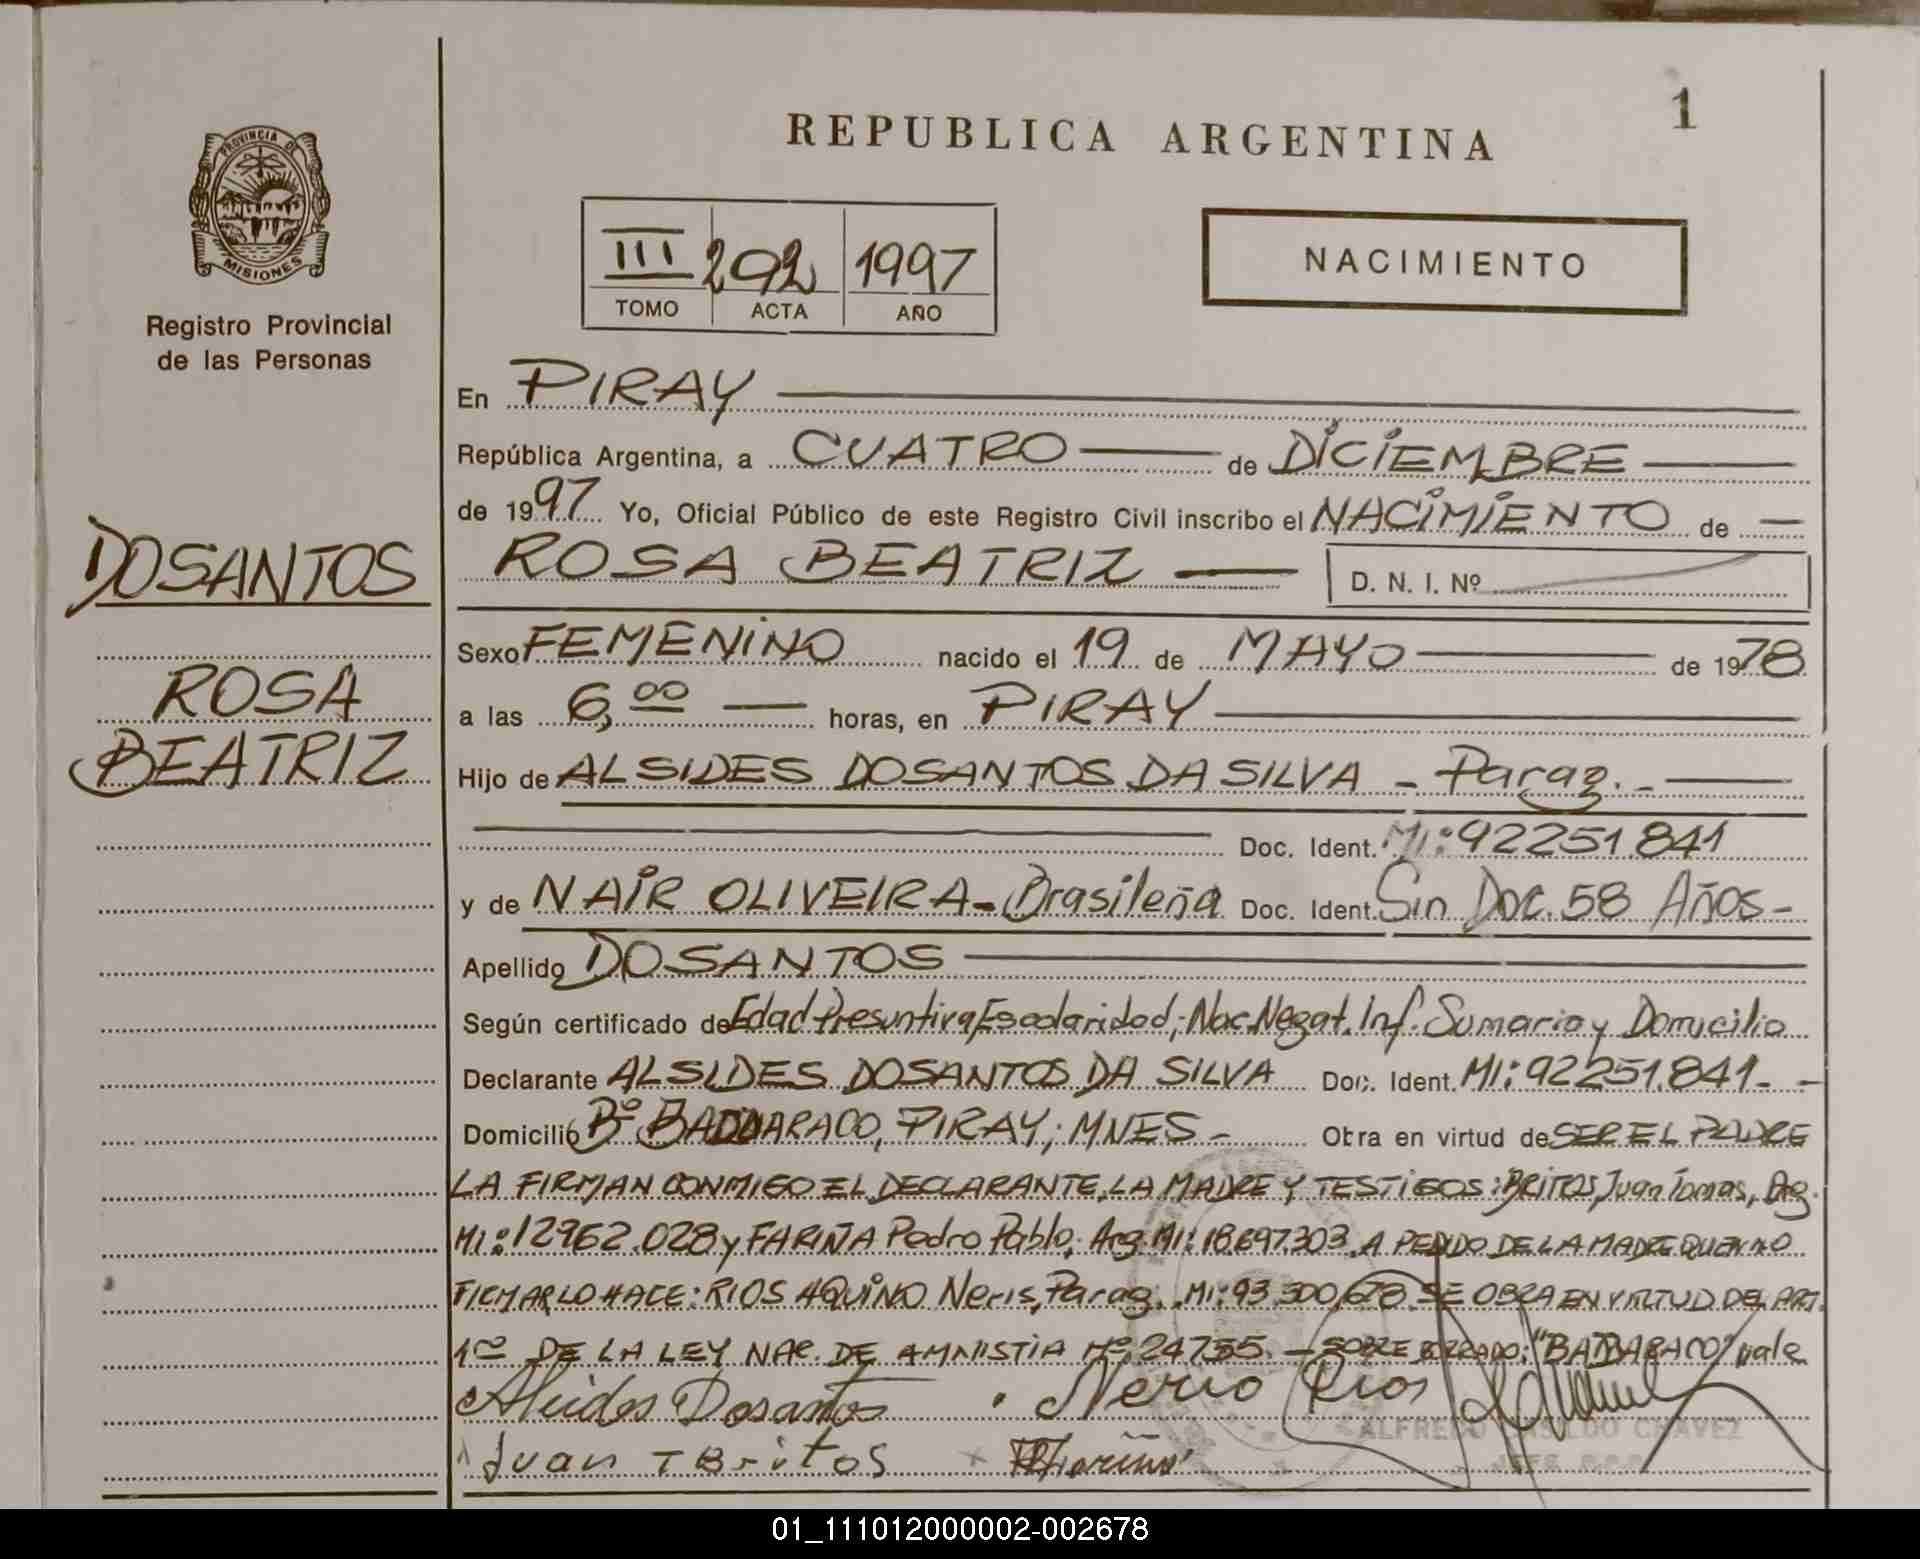 1
REPUBLICA ARGENTINA
PROVINCIA DE
MISIONES
Registro Provincial
de las Personas
III 292 1997
TOMO ACTA AÑO
NACIMIENTO
DOSANTOS
ROSA
BEATRIZ
En PIRAY
República Argentina, a CUATRO de DICIEMBRE
de 1997 Yo, Oficial Público de este Registro Civil inscribo el NACIMIENTO de
ROSA BEATRIZ D. N. I. Nº
Sexo FEMENINO nacido el 19 de MAYO de 1978
a las 6,00 horas, en PIRAY
Hijo de ALSIDES DOSANTOS DA SILVA - Parag. -
Doc. Ident. MI: 92251.841
y de NAIR OLIVEIRA - Brasileña Doc. Ident. Sin Doc. 58 Años -
Apellido DOSANTOS
Según certificado de Edad Presuntiva, Escolaridad, Nac. Negat. Inf. Sumaria y Domicilio
Declarante ALSIDES DOSANTOS DA SILVA Doc. Ident. MI: 92251.841. -
Domicilio Bº BADDARACO, PIRAY, MNES - Obra en virtud de SER EL PADRE
LA FIRMAN CONMIGO EL DECLARANTE, LA MADRE Y TESTIGOS: BRITOS, Juan Tomas, Arg.
MI: 12962.028 y FARIÑA Pedro Pablo, Arg. MI: 18.697.303. A PEDIDO DE LA MADRE QUIEN NO
FIRMAR LO HACE: RIOS AQUINO Neris, Parag. MI: 93.300,678. SE OBRA EN VIRTUD DEL ART.
1º DE LA LEY NAC. DE AMNISTIA Nº 24755. - SOBRE BORRADO: "BADDARACO" vale
Alcides Dosantos Nerio Rios
ALFREDO CHAVEZ
Juan T Britos Fariña
01_111012000002-002678